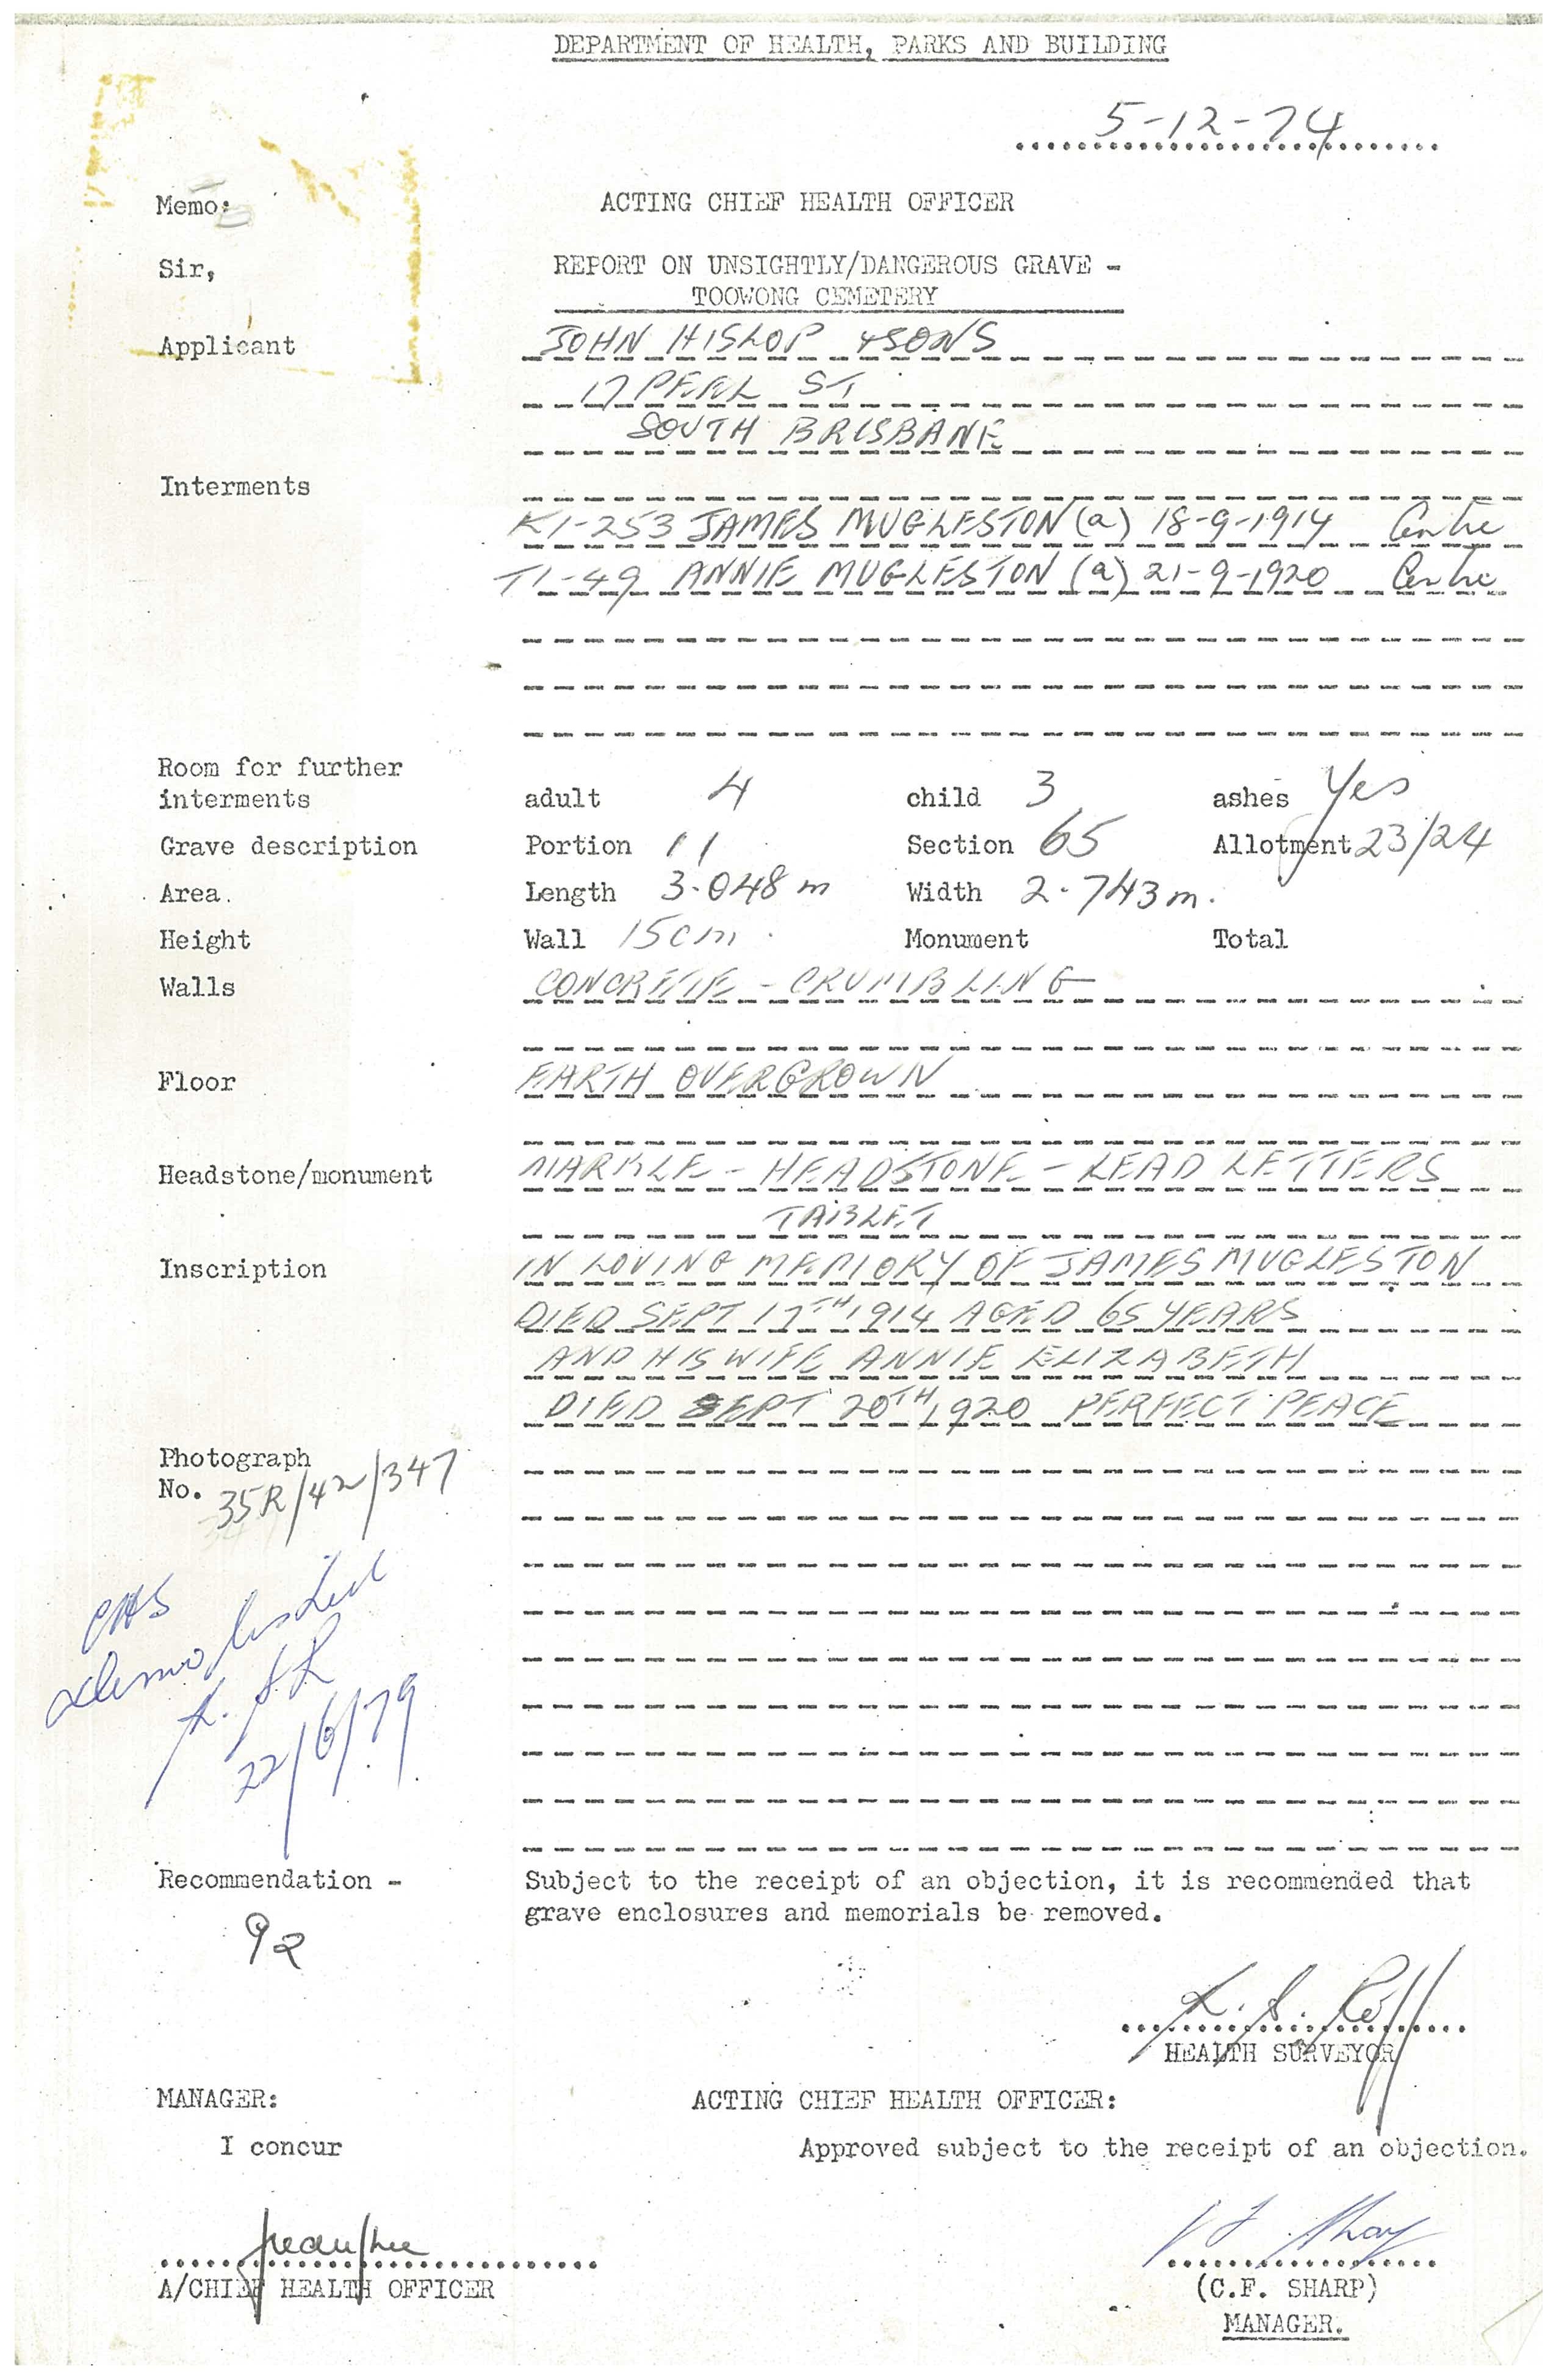 DEPARTMENT OF HEALTH, PARKS AND BUILDING
5-12-74
Memo: ACTING CHIEF HEALTH OFFICER
Sir, REPORT ON UNSIGHTLY/DANGEROUS GRAVE -
TOOWONG CEMETERY
Applicant JOHN HISLOP & SONS
17 PEEL ST
SOUTH BRISBANE
Interments
K1-253 JAMES MUGLESTON (a) 18-9-1914 Centre
T1-49 ANNIE MUGLESTON (a) 21-9-1920 Centre
Room for further
interments adult 4 child 3 ashes Yes
Grave description Portion 11 Section 65 Allotment 23/24
Area. Length 3.048 m Width 2.743 m.
Height Wall 15cm. Monument Total
Walls CONCRETE - CRUMBLING
Floor EARTH OVERGROWN
Headstone/monument MARBLE - HEADSTONE - LEAD LETTERS
TABLET
Inscription IN LOVING MEMORY OF JAMES MUGLESTON
DIED SEPT 17TH 1914 AGED 65 YEARS
AND HIS WIFE ANNIE ELIZABETH
DIED SEPT 20TH 1920 PERFECT PEACE
Photograph
No. 35R/42/347
demolished
22/6/79
Recommendation - Subject to the receipt of an objection, it is recommended that
grave enclosures and memorials be removed.
92
HEALTH SURVEYOR
MANAGER: ACTING CHIEF HEALTH OFFICER:
I concur Approved subject to the receipt of an objection.
A/CHIEF HEALTH OFFICER (C.F. SHARP)
MANAGER.